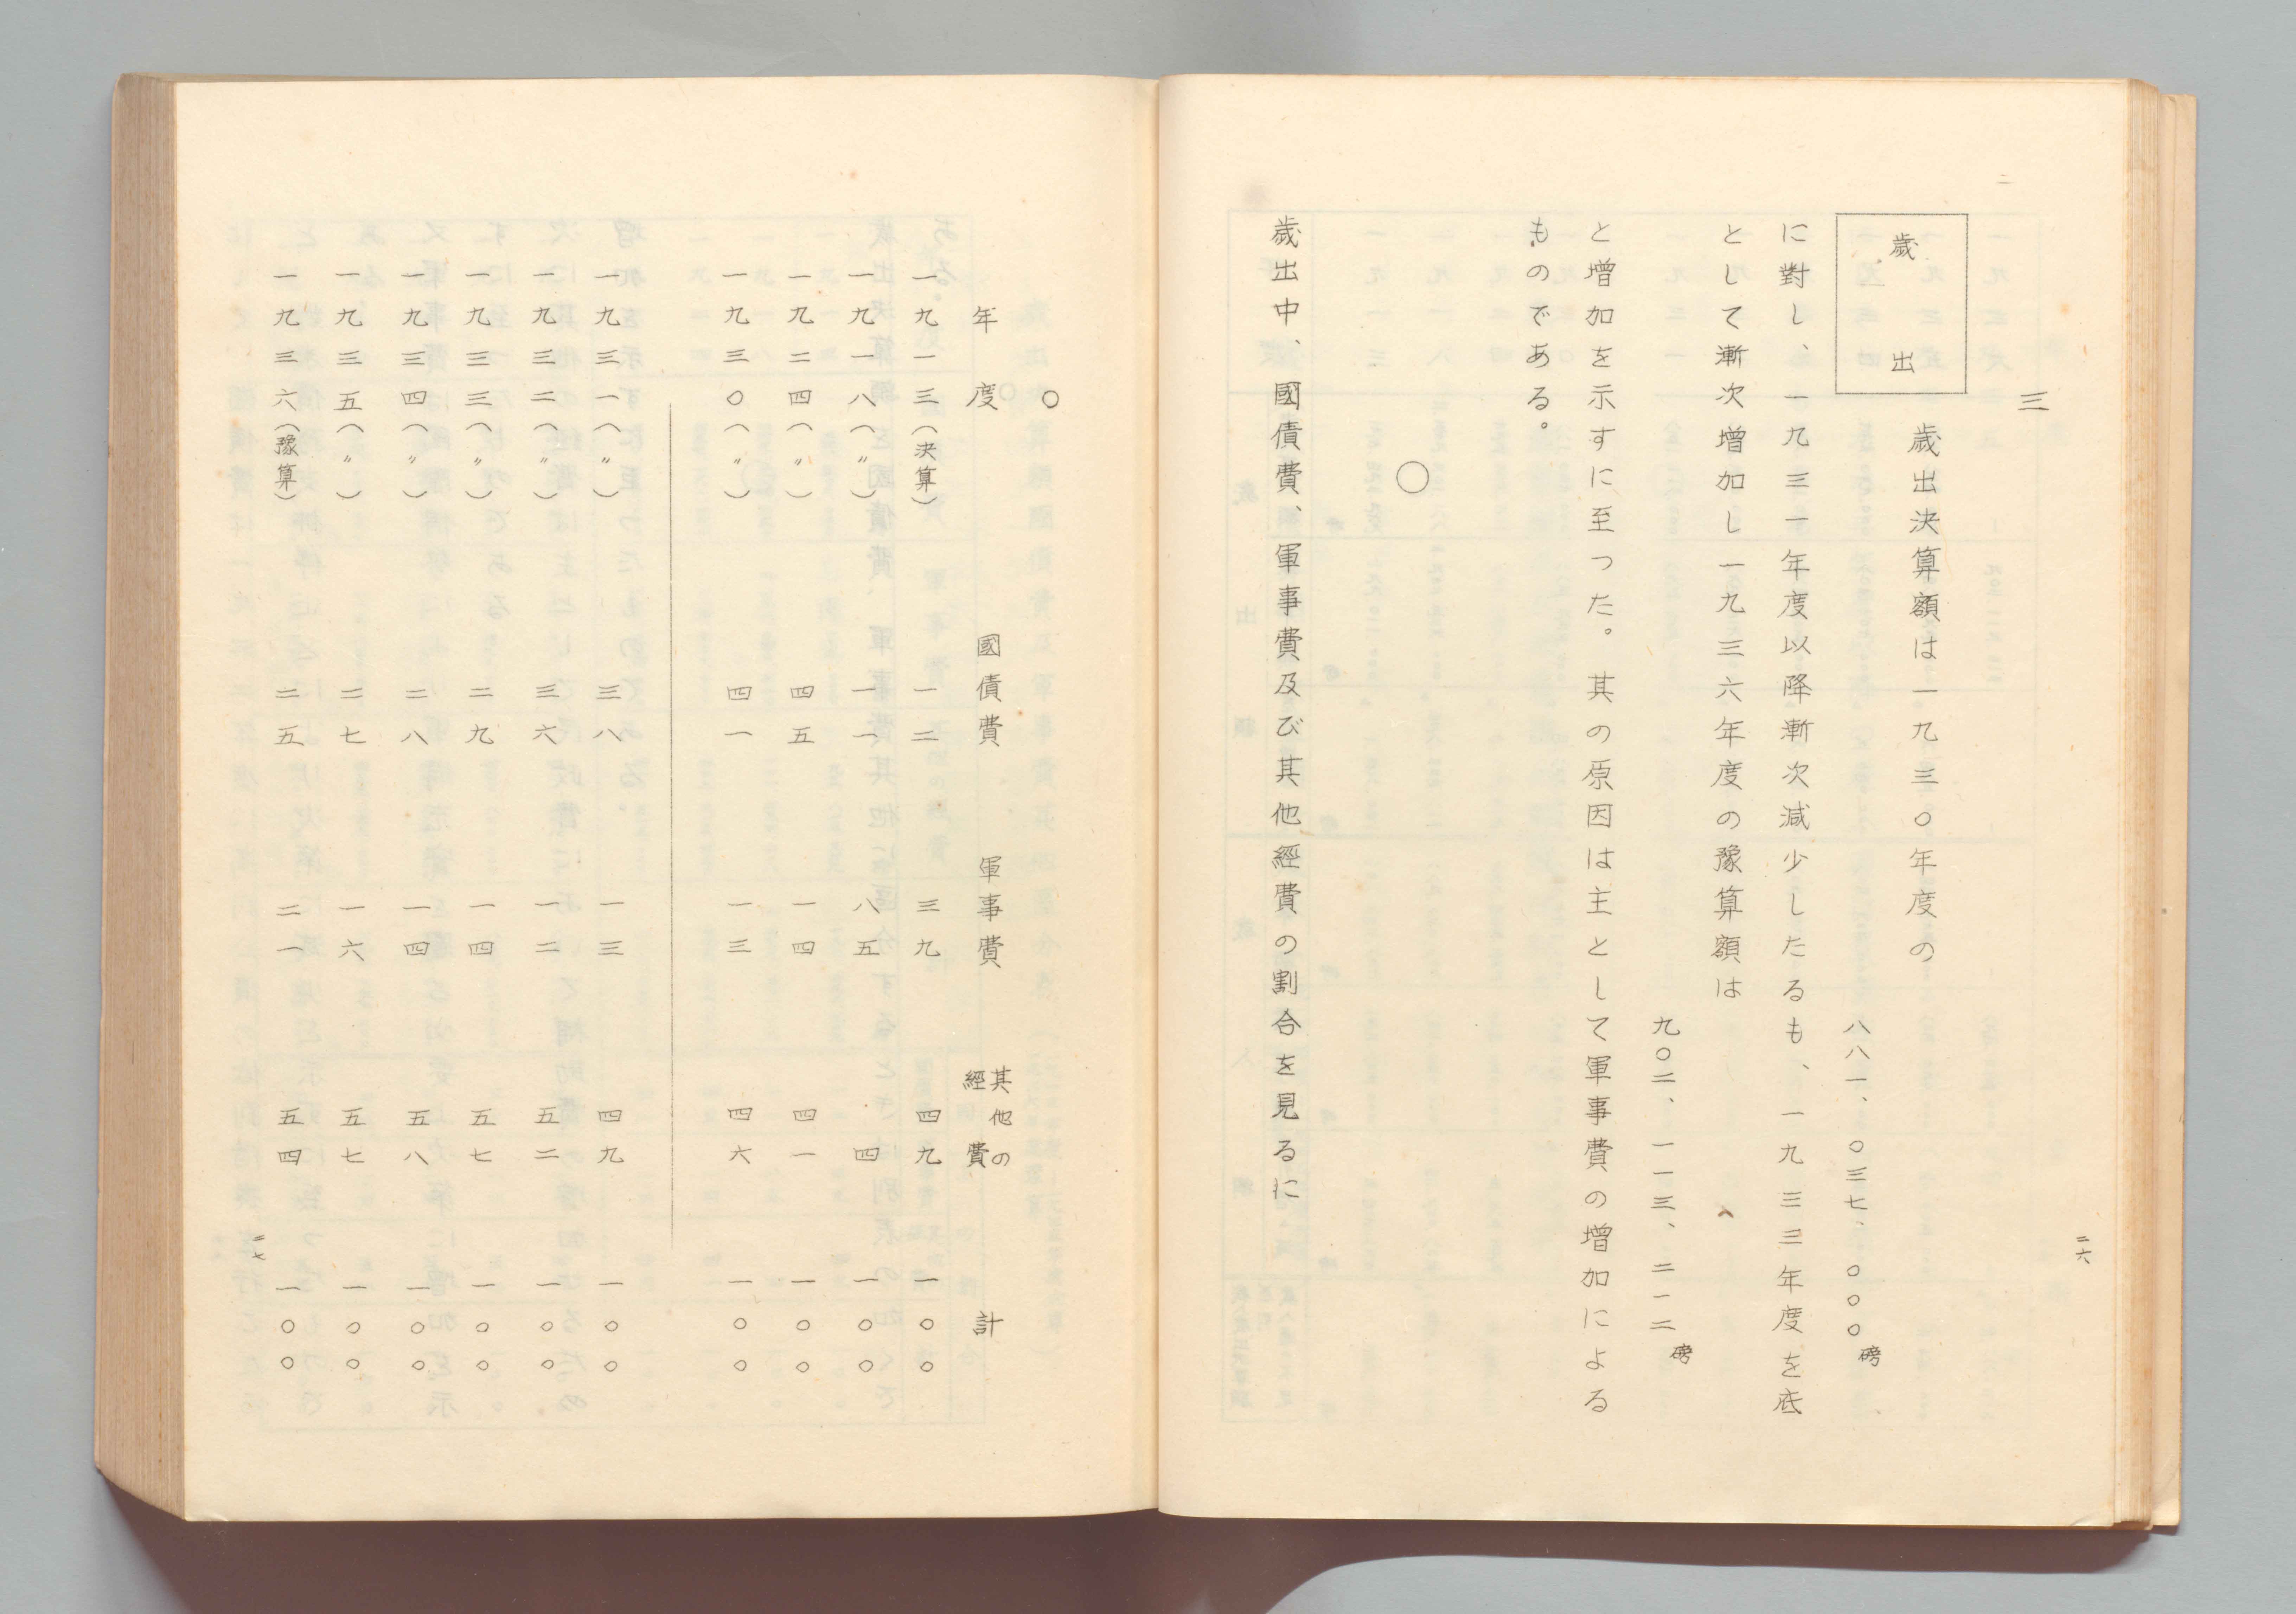 二六
三
歳出
歳出決算額は一九三〇年度の
八八一、〇三七、〇〇〇磅
に對し、一九三一年度以降漸次減少したるも、一九三三年度を底
として漸次增加し一九三六年度の豫算額は
九〇二、一一三、二一二磅
と增加を示すに至った。其の原因は主として軍事費の增加による
ものである。
〇
歳出中、國債費、軍事費及び其他經費の割合を見るに
〇
年度 國債費 軍事費 其他の經費 計
一九一三(決算) 一二 三九 四九 一〇〇
一九一八(〃) 一一 八五 四 一〇〇
一九二四(〃) 四五 一四 四一 一〇〇
一九三〇(〃) 四一 一三 四六 一〇〇
一九三一(〃) 三八 一三 四九 一〇〇
一九三二(〃) 三六 一二 五二 一〇〇
一九三三(〃) 二九 一四 五七 一〇〇
一九三四(〃) 二八 一四 五八 一〇〇
一九三五(〃) 二七 一六 五七 一〇〇
一九三六(豫算) 二五 二一 五四 一〇〇
二七